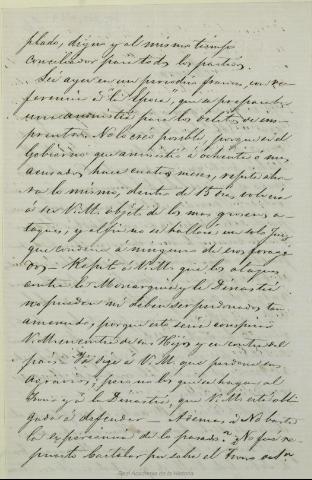 plado, digno y al mismo tiempo
conciliador para todos los partidos.
Leí ayer en un periódico francés, con re-
ferencia a "la Época", que se preparaba
una amnistía para los delitos de im-
prenta. No lo creo posible, porque si el
Gobierno que amnistió a ochenta ó mas
acusados hace cuatro meses, repite aho-
ra lo mismo, dentro de 15 días, volvería
á ser V.M. objeto de los mas groseros a-
taques, y al fin no se hallará un solo Juez
que condene á ninguno de esos foraji-
dos — Repito á V.M. que los ataques
contra la Monarquía y la Dinastía
no pueden ni deben ser perdonados
porque esto sería conspirar
V.M. en contra de sus Hijos y en contra del
país. Yo dige á V.M. que perdonase sus
agravios, pero no los que se hagan al
Trono y á la Dinastía, que V.M. está obli-
gada á defender — Ademas ¿No basta
la experiencia de lo pasado? ¿No fué
sobre el Trono
Real Academia de la Historia